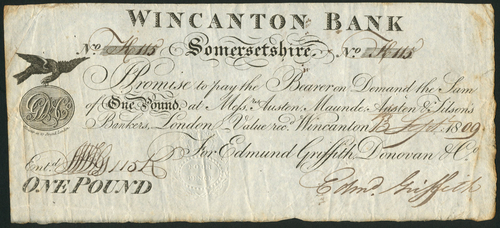 WINCANTON BANK
No. K 115 Somersetshire. No. K 115
I Promise to pay the Bearer on Demand the Sum
of One Pound, at Mess.rs Austen, Maunde, Austen & Tilson's
Bankers, London Value rec.d Wincanton Sept. 1809
For Edmund Griffith, Donovan & Co.
Ent.d 115 K
ONE POUND
Edm.d Griffith